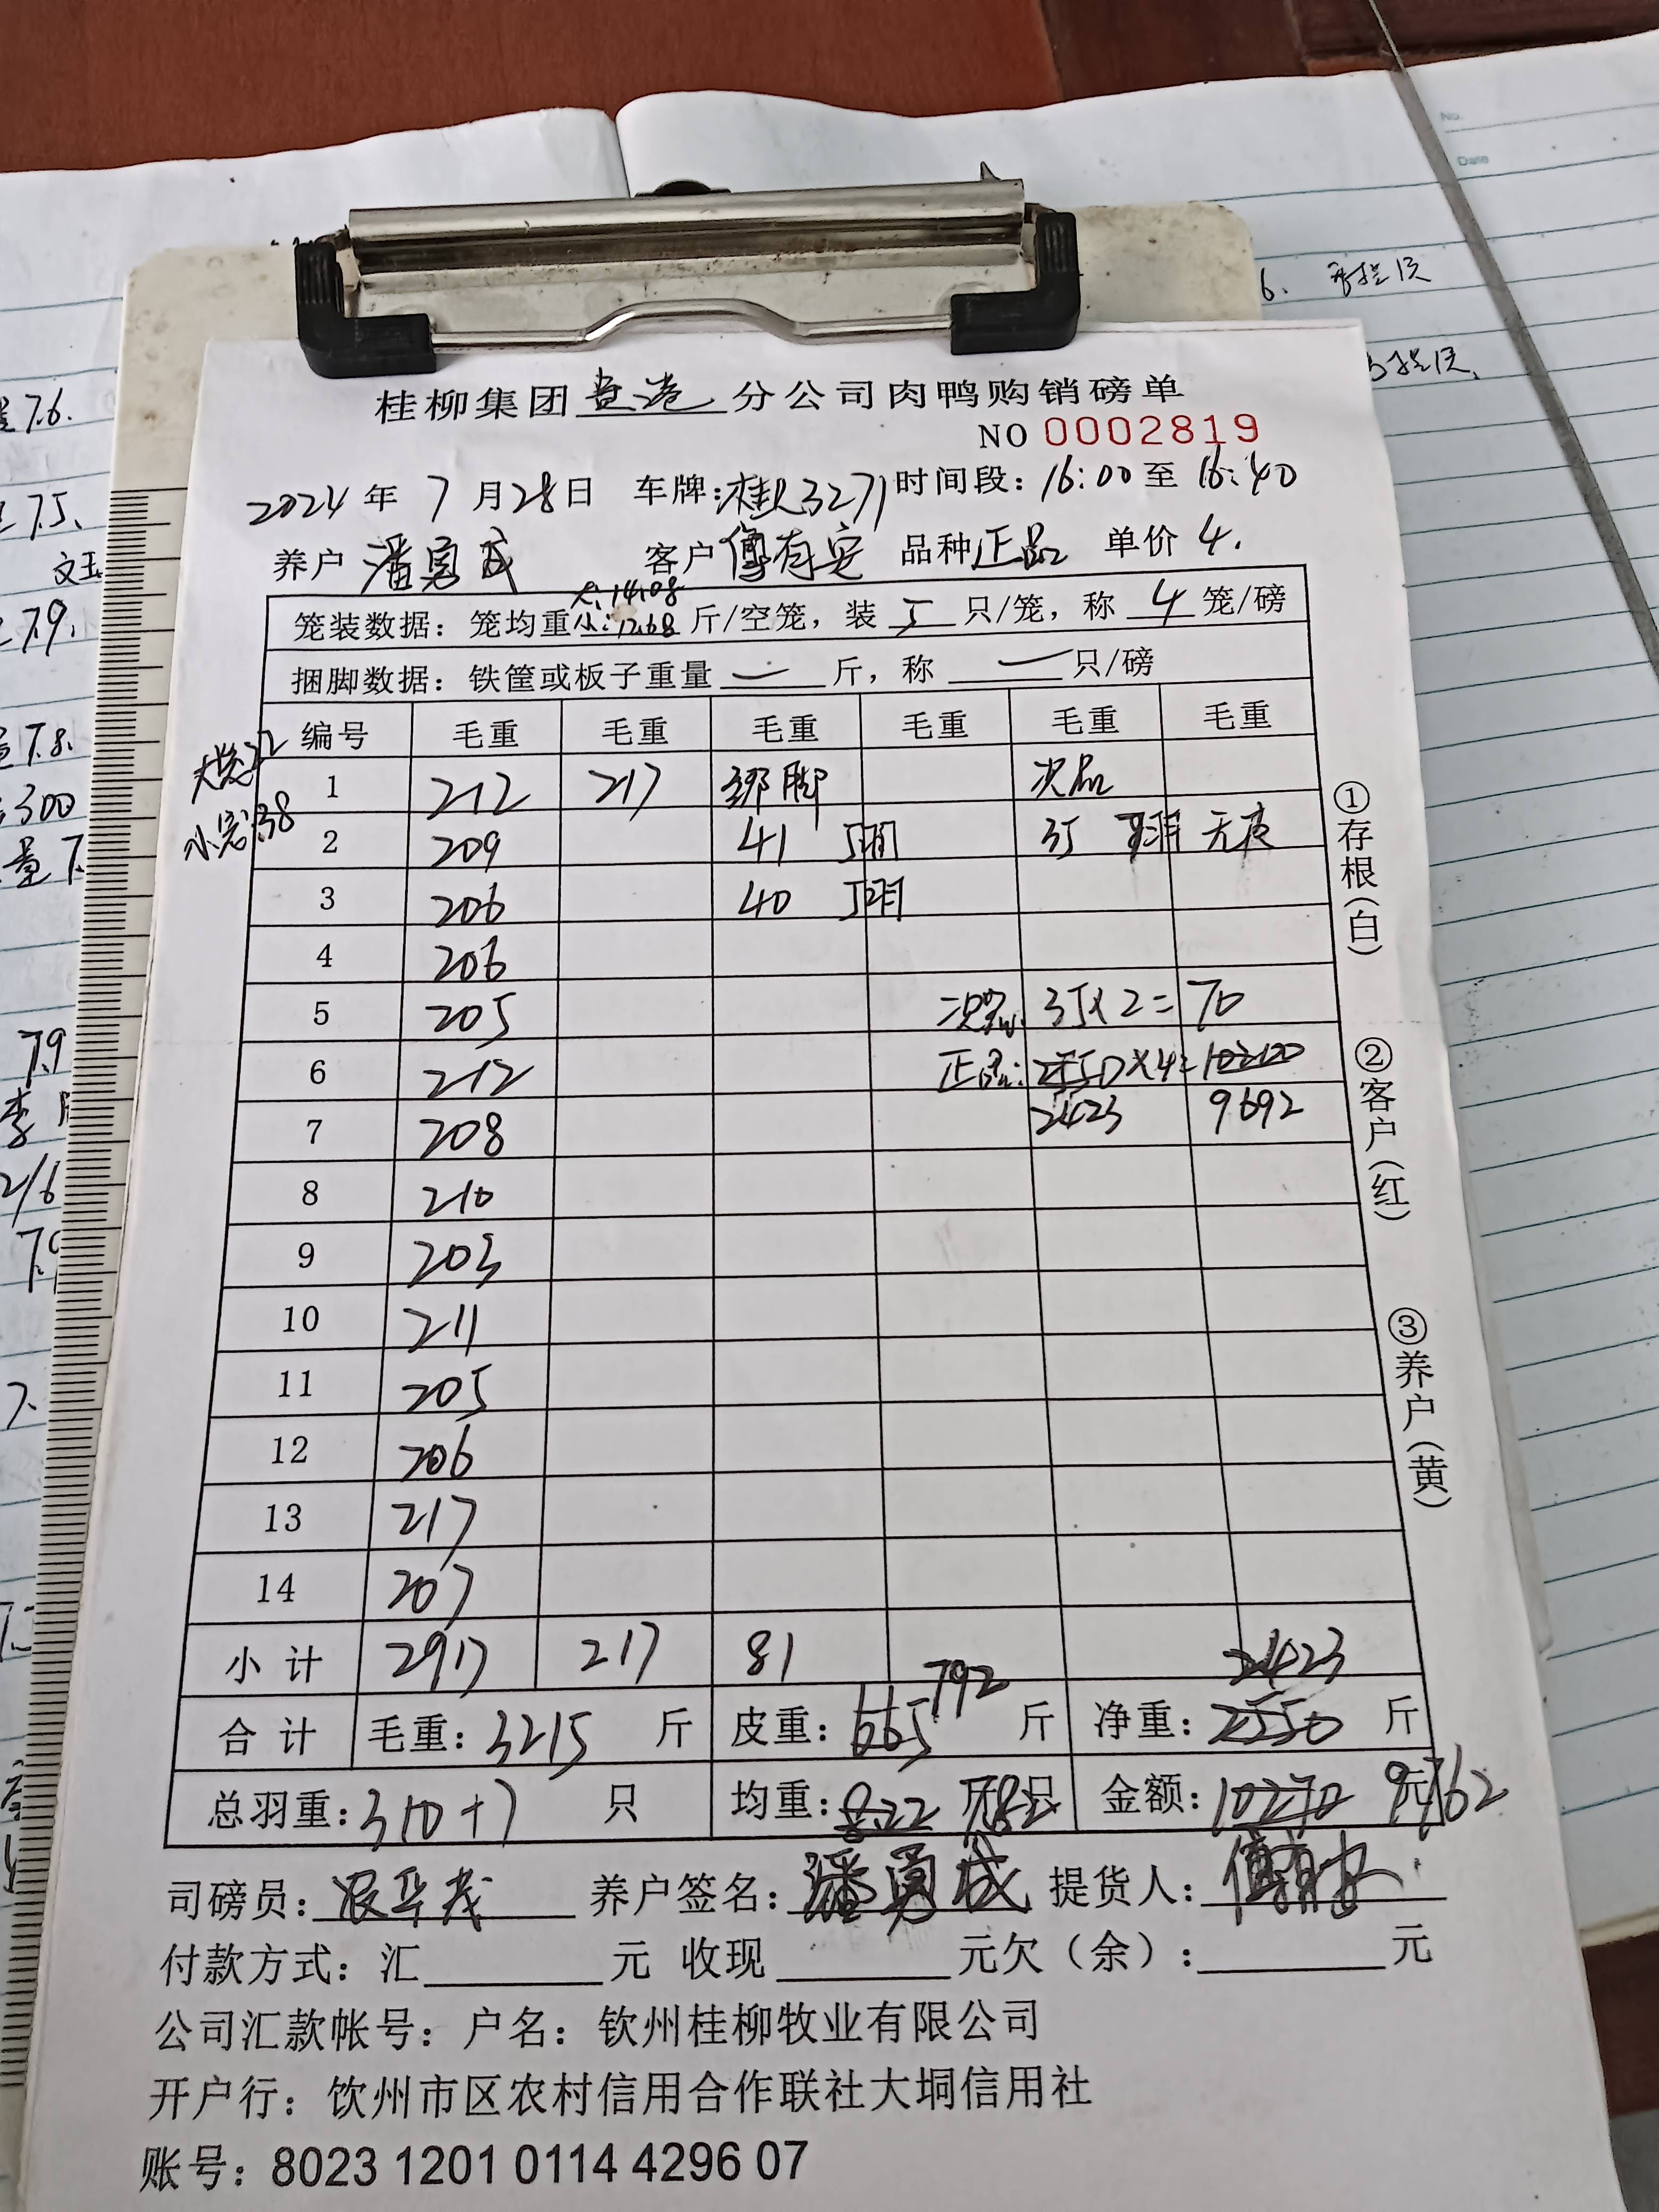 桂柳集团 分公司肉鸭购销磅单
NO 0002819
2024 年 7 月 28 日 车牌:桂L3271 时间段:16:00 至 16:40
养户 潘勇成 客户 傅有安 品种 正品 单价 4.
大:14.08
笼装数据:笼均重 小:12.68 斤/空笼,装 5 只/笼,称 4 笼/磅
捆脚数据:铁筐或板子重量 — 斤,称 — 只/磅
大笼22
小笼:38
编号 毛重 毛重 毛重 毛重 毛重 毛重
1 212 217 绑脚 次品
2 209 41 5只 35 无皮
3 206 40 5只
4 206
5 205 次品: 35×2= 70
6 212 正品: 2550×4=10200
7 208 2423 9692
8 210
9 203
10 211
11 205
12 206
13 217
14 207
小计 2917 217 81 2423
合计 毛重:3215 斤 皮重:665 792 斤 净重:2550 斤
总羽重:310+7 只 均重:8.22 斤/只 7.82 金额:10270 元 9762
司磅员: 养户签名:潘勇成 提货人:傅有安
付款方式:汇 元 收现 元欠(余): 元
公司汇款帐号:户名:钦州桂柳牧业有限公司
开户行:钦州市区农村信用合作联社大垌信用社
账号:8023 1201 0114 4296 07
①存根(白)
②客户(红)
③养户(黄)
No.
Date
7.6.
7.5.
7.9.
7.8.
300
量7
7.9
李
2/6